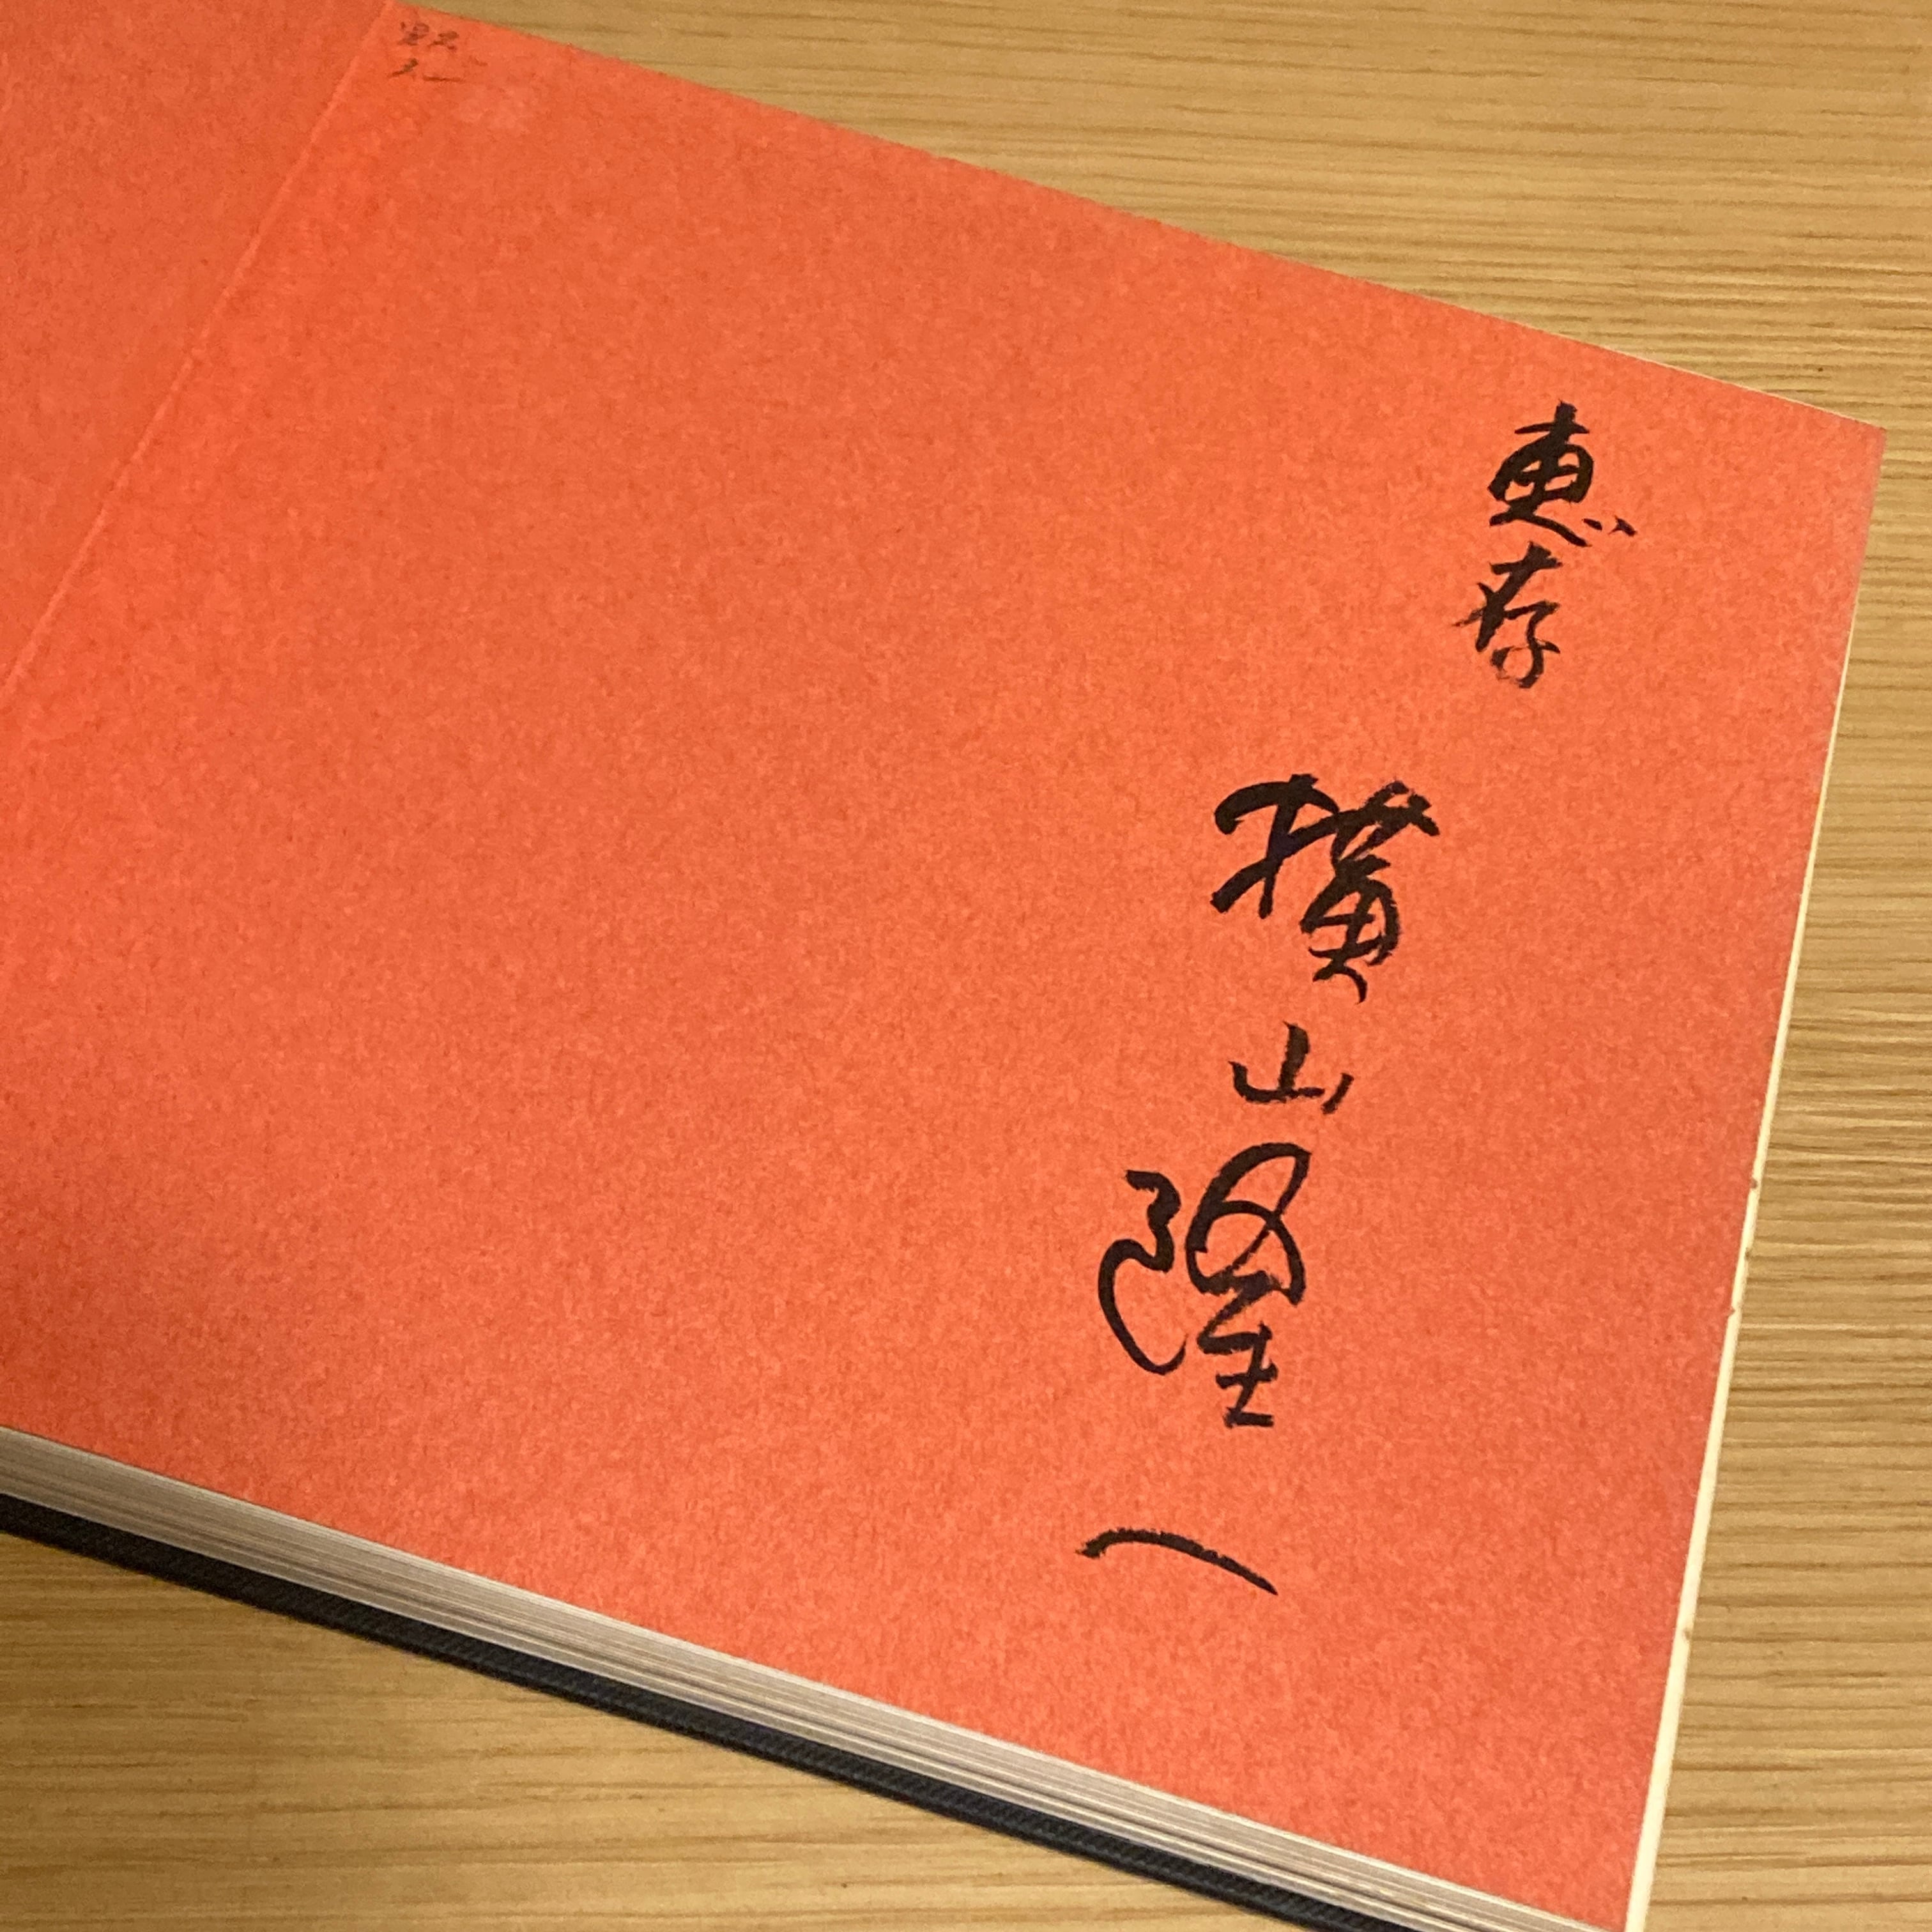 恵存
横山隆一